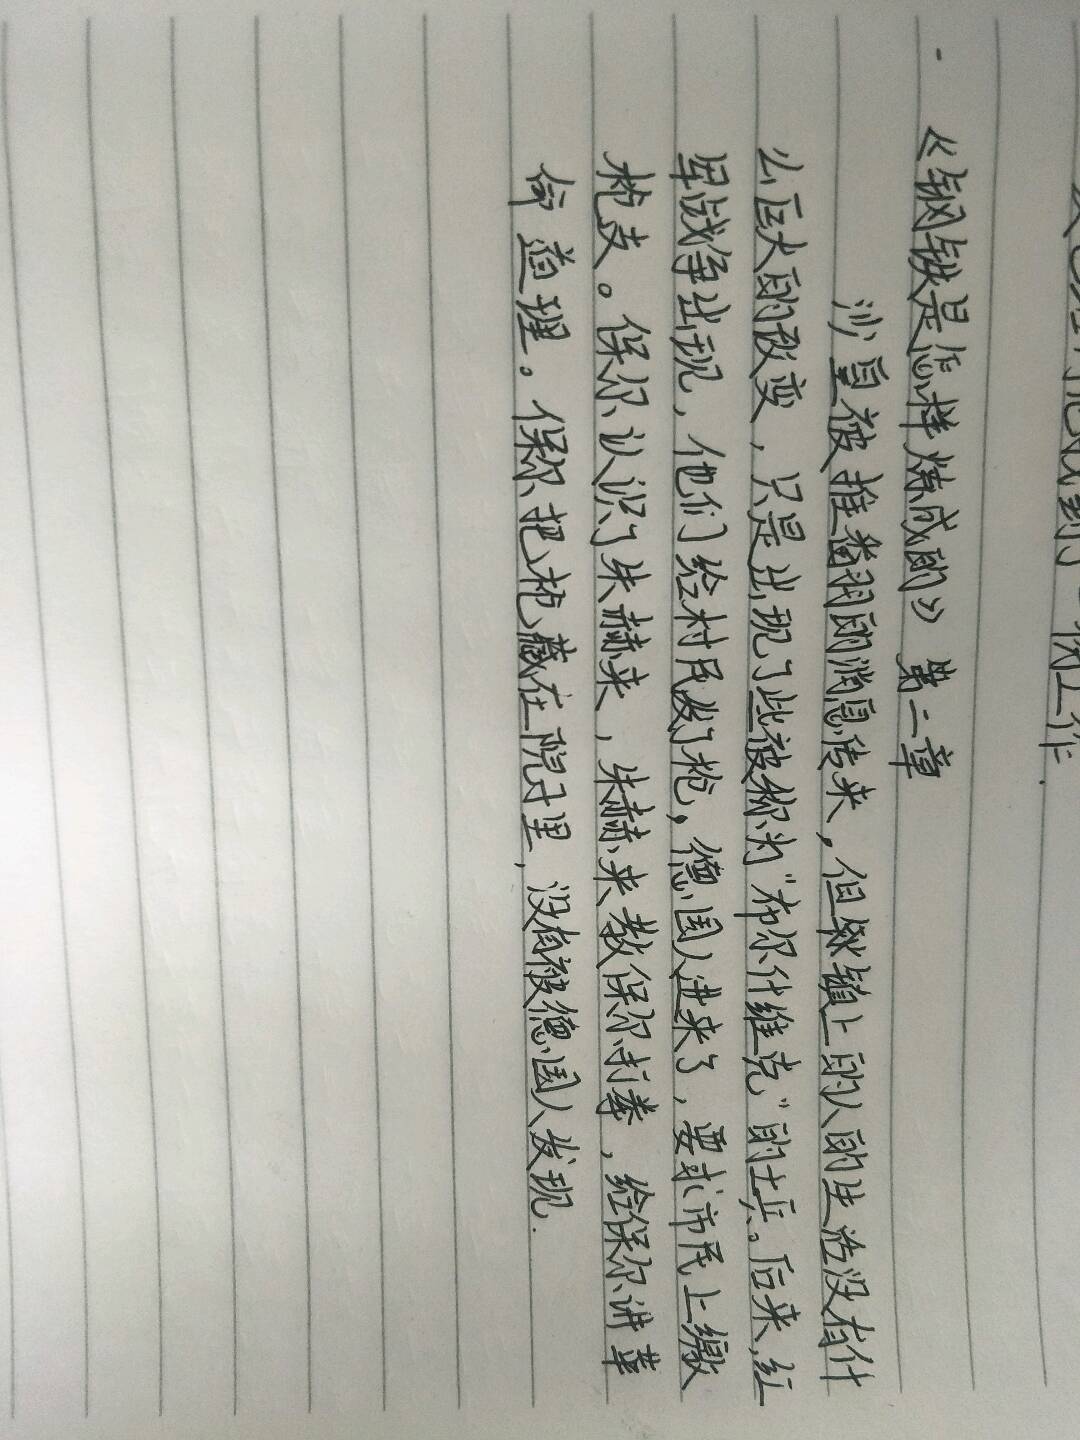 《钢铁是怎样炼成的》 第二章
沙皇被推翻的消息传来，但镇上的人的生活没有什
么巨大的改变，只是出现了些被称为“布尔什维克”的士兵。后来，红
军战争出现，他们给村民发了枪，德国人进来了，要求市民上缴
枪支。保尔认识了朱赫来，朱赫来教保尔打拳，给保尔讲革
命道理。保尔把枪藏在院子里，没有被德国人发现.